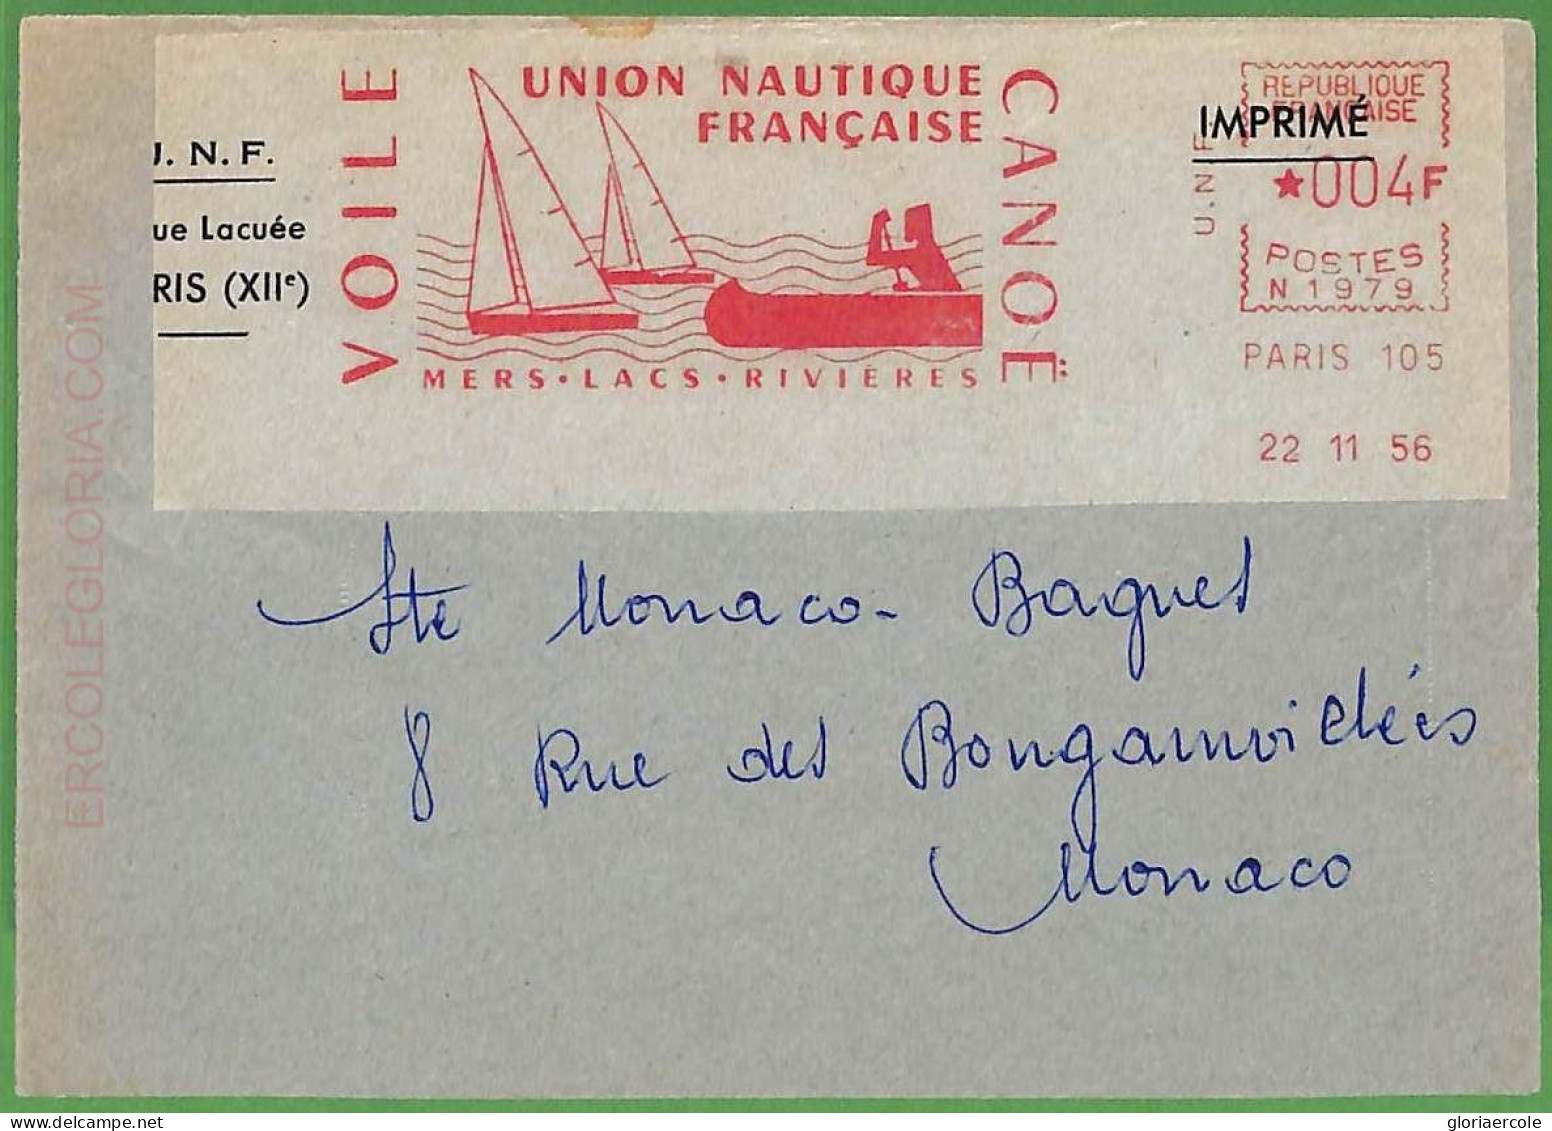 UNION NAUTIQUE
FRANÇAISE
VOILE
CANOË
MERS • LACS • RIVIÈRES
J. N. F.
ue Lacuée
RIS (XIIᵉ)
IMPRIMÉ
REPUBLIQUE
FRANCAISE
U.N.F
★004F
POSTES
N 1979
PARIS 105
22 11 56
Sté Monaco-Baquet
8 Rue des Bougainvillées
Monaco
ERCOLEGLORIA.COM
gloriaercole